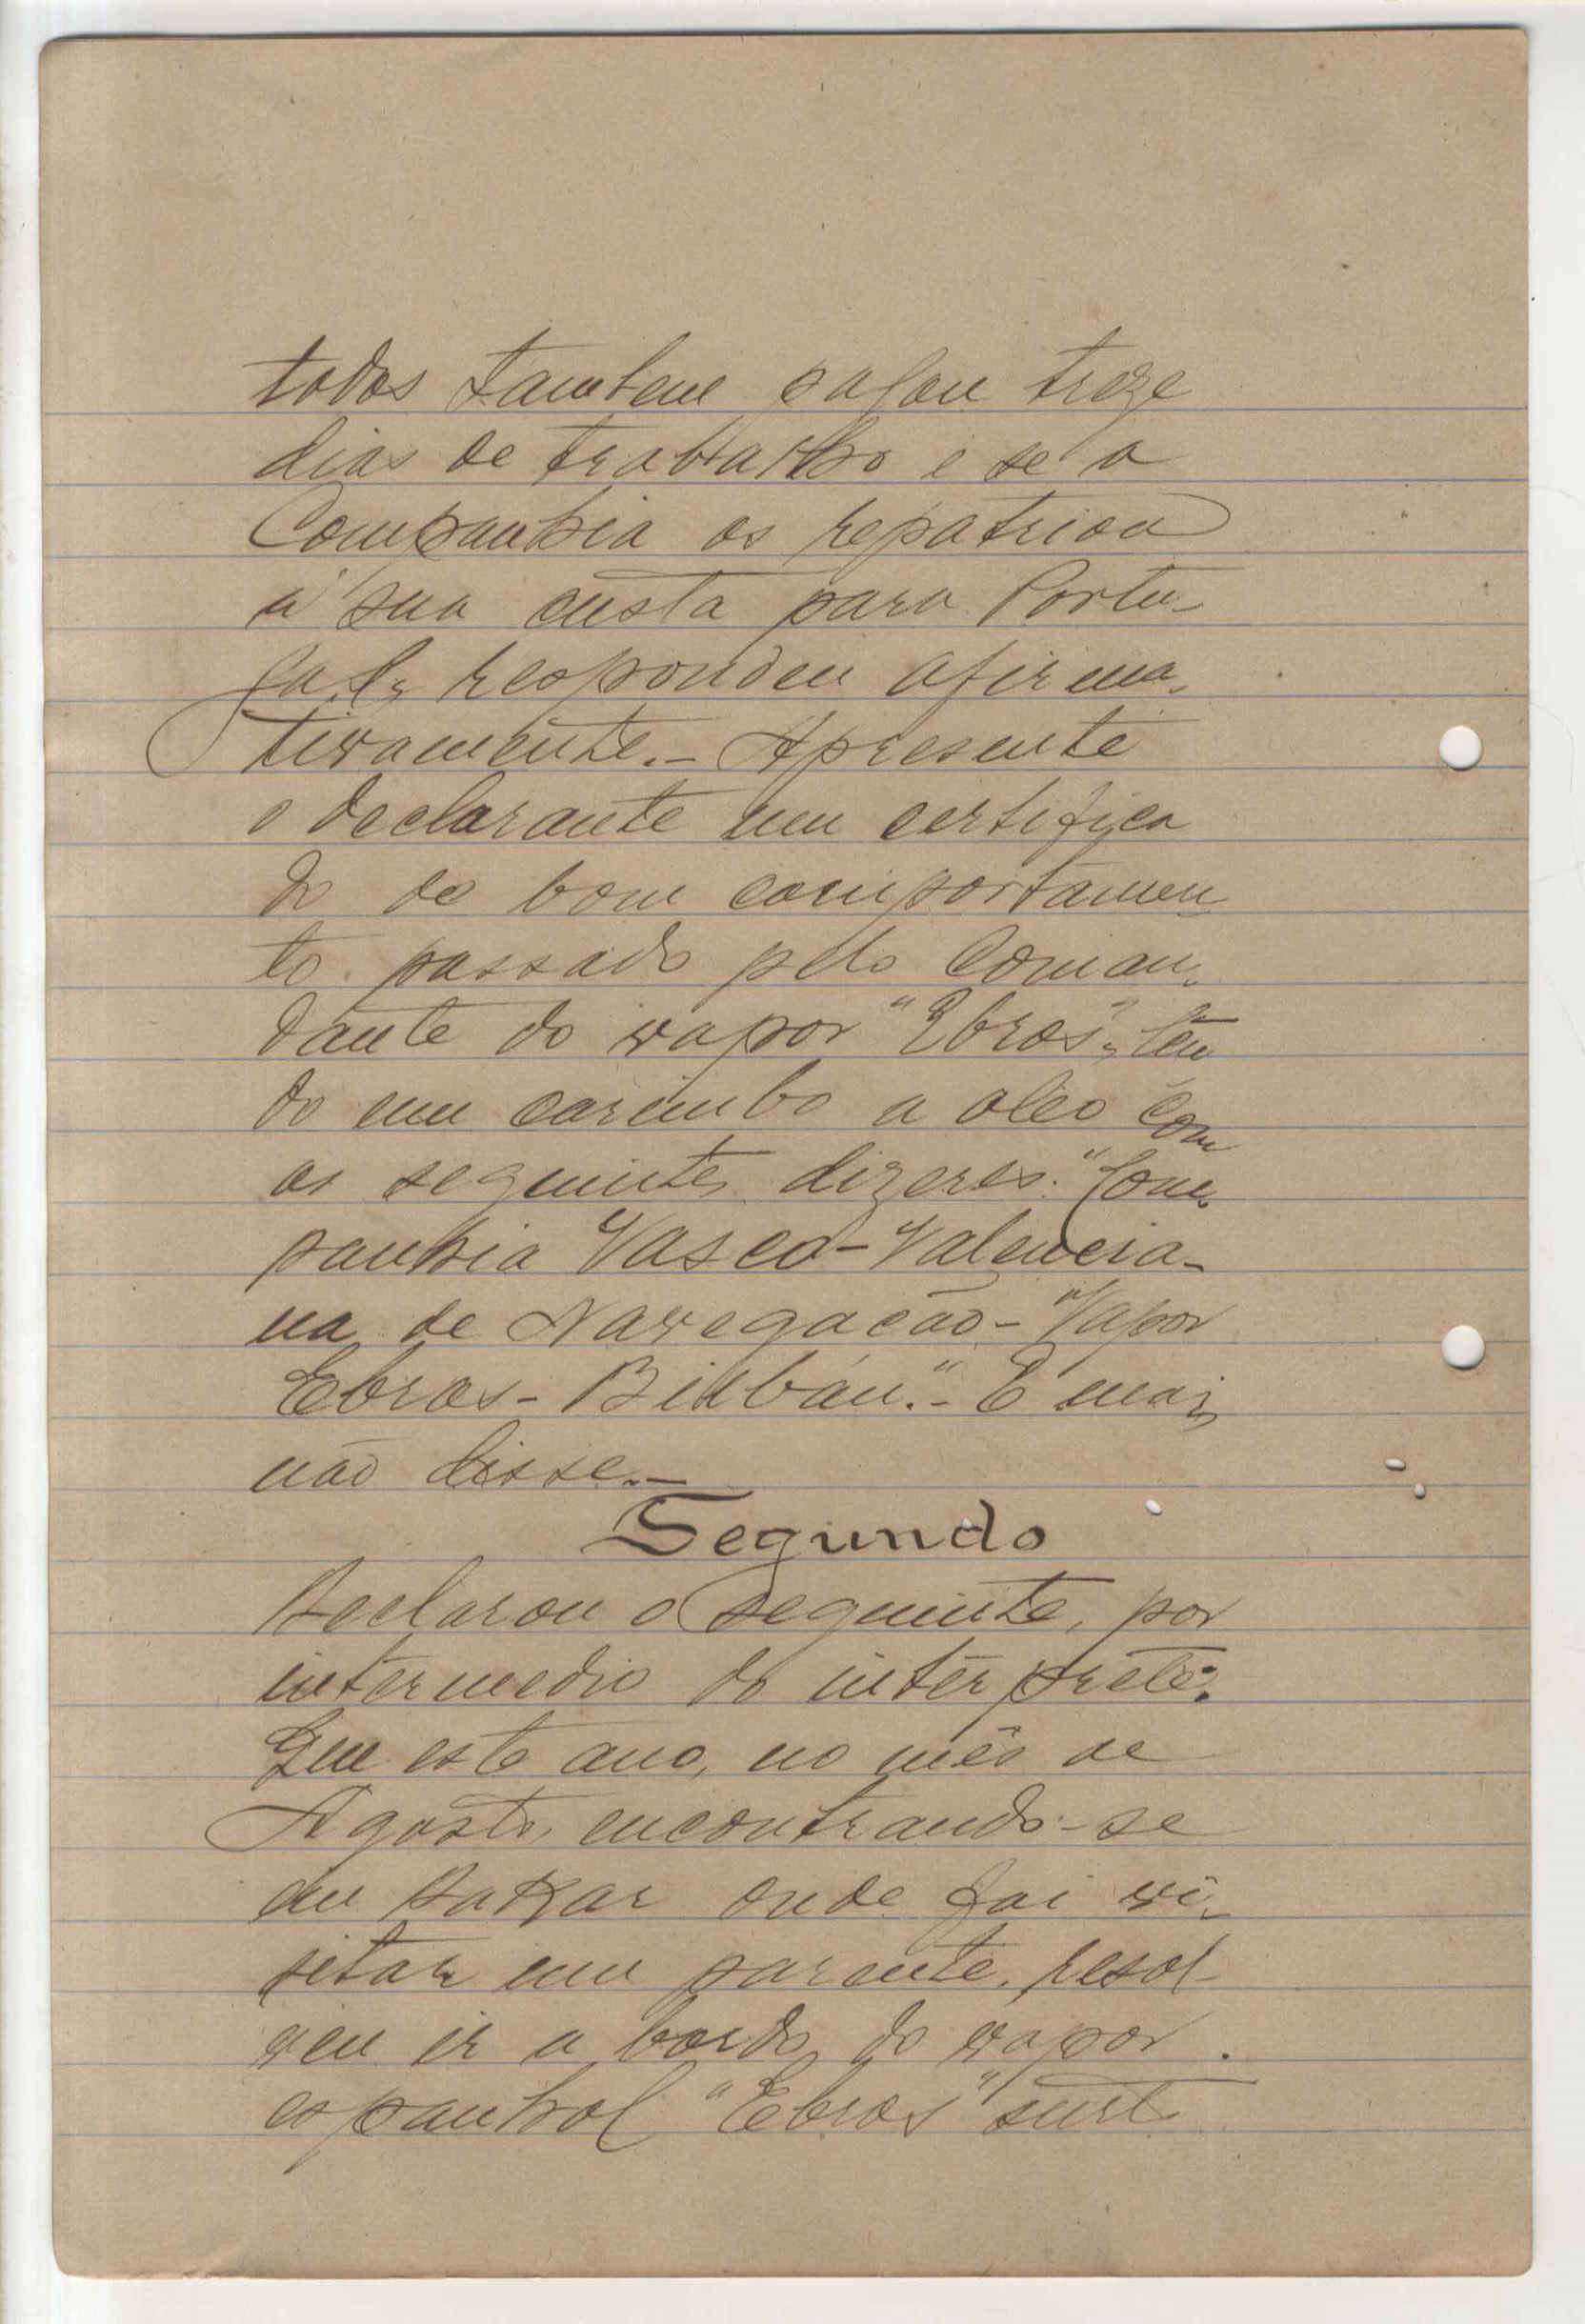 todos tambem pagou treze
dias de trabalho e se a
Companhia os repatriou
á sua custa para Portu-
gal, respondeu afirma-
tivamente.- Apresente
o declarante um certifica
do de bom comportamen-
to passado pelo Coman-
dante do vapor "Ebros", ten
do um carimbo a oleo com
os seguintes dizeres: "Com-
panhia Vasco-Valencia-
na de Navegação - Vapor
Ebros - Bilbáu." - E mais
não disse.-
Segundo
Declarou o seguinte, por
intermedio do interprete:
Que este ano, no mês de
Agosto, encontrando-se
em Dakar onde foi vi-
sitar um parente, resol-
veu ir a bordo do vapor
espanhol "Ebros" surt